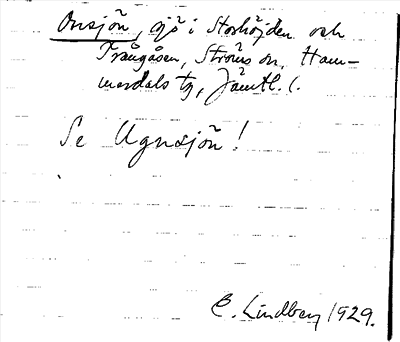 Onsjön, sjö i Storhöjden och
Trångåsen, Ströms sn, Ham-
merdals tg, Jämtl. l.
Se Ugnsjön!
C. Lindberg 1929.